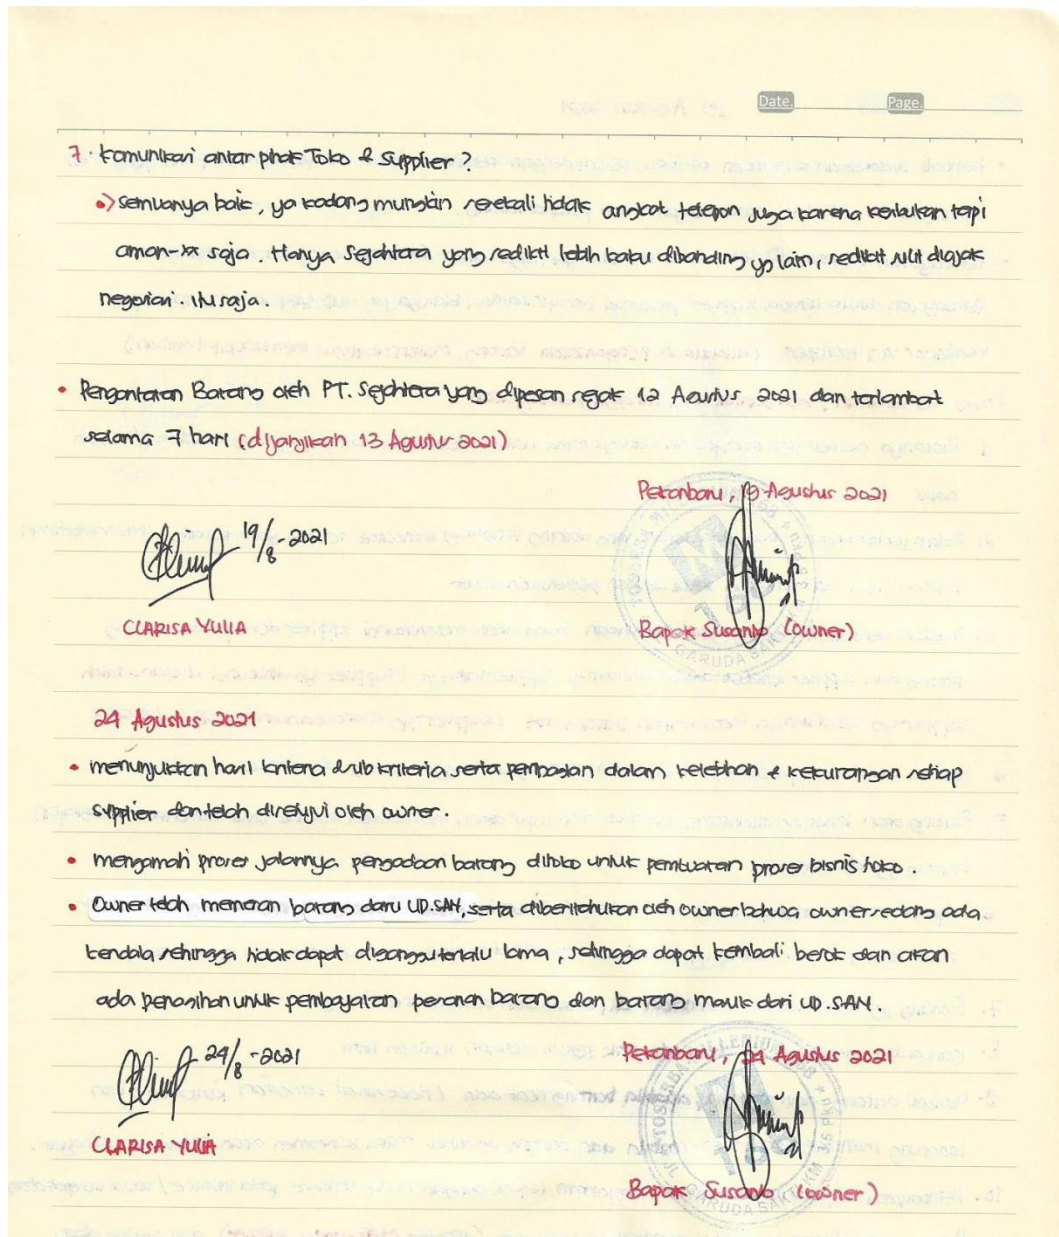 Date. Page.
7. Komunikasi antar pihak Toko & Supplier?
•> semuanya baik, ya kadang mungkin sesekali tidak angkat telepon juga karena kesibukan tapi
aman-xx saja. Hanya Sejahtera yang sedikit lebih baku dibanding yg lain, sedikit sulit diajak
negosiasi. Itu saja.
• Pengantaran Barang oleh PT. Sejahtera yang dipesan sejak 12 Agustus 2021 dan terlambat
selama 7 hari (dijanjikan 13 Agustus 2021)
Pekanbaru, 19 Agustus 2021
19/8-2021
CLARISA YULIA
Bapak Susanto (owner)
GARUDA SAKTI KM 3.5 PKU
24 Agustus 2021
• menunjukkan hasil kriteria & sub kriteria serta pembagian dalam kelebihan & kekurangan setiap
supplier dan telah disetujui oleh owner.
• mengamati proses jalannya pengadaan barang ditoko untuk pembuatan proses bisnis toko.
• Owner telah memesan barang dari UD.SAM, serta diberitahukan oleh owner bahwa owner sedang ada
kendala sehingga tidak dapat diganggu terlalu lama, sehingga dapat kembali besok dan akan
ada penagihan untuk pembayaran pesanan barang dan barang masuk dari UD.SAM.
24/8-2021
Pekanbaru, 24 Agustus 2021
CLARISA YULIA
Bapak Susanto (owner)
TOSERBA
JL. GARUDA SAKTI KM 3.5 PKU